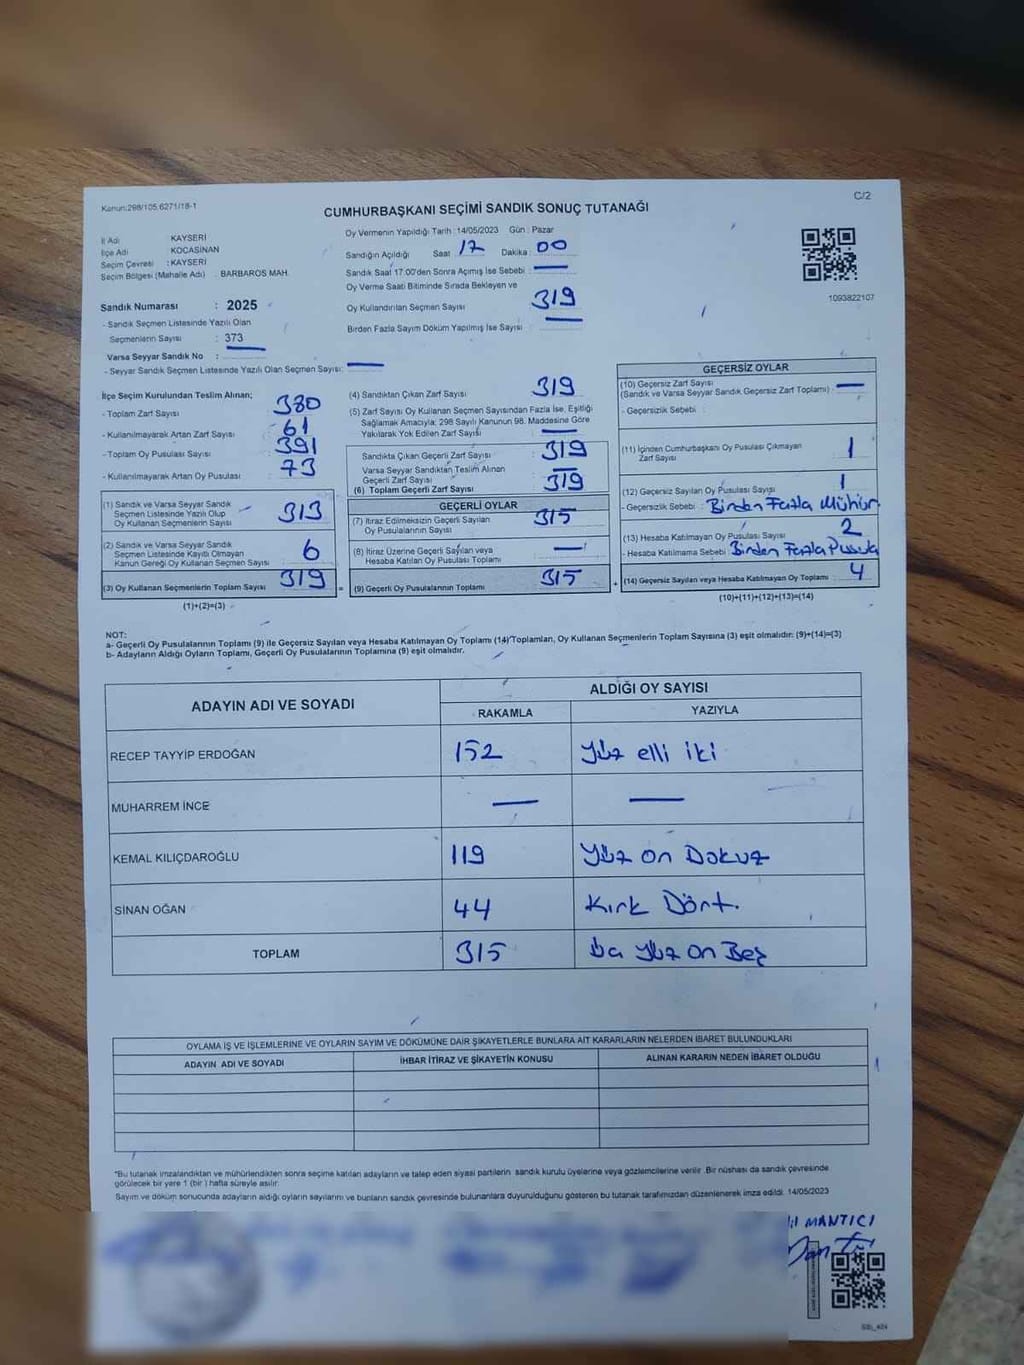 Kanun:298/105,6271/18-1
C/2
CUMHURBAŞKANI SEÇİMİ SANDIK SONUÇ TUTANAĞI
İl Adı KAYSERİ
İlçe Adı : KOCASİNAN
Seçim Çevresi : KAYSERİ
Seçim Bölgesi (Mahalle Adı) : BARBAROS MAH.
Sandık Numarası : 2025
- Sandık Seçmen Listesinde Yazılı Olan
Seçmenlerin Sayısı : 373
Varsa Seyyar Sandık No :
- Seyyar Sandık Seçmen Listesinde Yazılı Olan Seçmen Sayısı:
Oy Vermenin Yapıldığı Tarih :14/05/2023 Gün : Pazar
Sandığın Açıldığı Saat 17 Dakika : 00
Sandık Saat 17.00'den Sonra Açımış İse Sebebi :
Oy Verme Saati Bitiminde Sırada Bekleyen ve
Oy Kullandırılan Seçmen Sayısı 319
Birden Fazla Sayım Döküm Yapılmış İse Sayısı
1093822107
İlçe Seçim Kurulundan Teslim Alınan;
- Toplam Zarf Sayısı : 380
- Kullanılmayarak Artan Zarf Sayısı : 61
- Toplam Oy Pusulası Sayısı : 391
- Kullanılmayarak Artan Oy Pusulası : 73
(1) Sandık ve Varsa Seyyar Sandık
Seçmen Listesinde Yazılı Olup
Oy Kullanan Seçmenlerin Sayısı 313
(2) Sandık ve Varsa Seyyar Sandık
Seçmen Listesinde Kayıtlı Olmayan
Kanun Gereği Oy Kullanan Seçmen Sayısı 6
(3) Oy Kullanan Seçmenlerin Toplam Sayısı 319
(1)+(2)=(3)
(4) Sandıktan Çıkan Zarf Sayısı : 319
(5) Zarf Sayısı Oy Kullanan Seçmen Sayısından Fazla İse, Eşitliği
Sağlamak Amacıyla; 298 Sayılı Kanunun 98. Maddesine Göre
Yakılarak Yok Edilen Zarf Sayısı
Sandıkta Çıkan Geçerli Zarf Sayısı : 319
Varsa Seyyar Sandıktan Teslim Alınan
Geçerli Zarf Sayısı
(6) Toplam Geçerli Zarf Sayısı : 319
GEÇERLİ OYLAR
(7) İtiraz Edilmeksizin Geçerli Sayılan
Oy Pusulalarının Sayısı 315
(8) İtiraz Üzerine Geçerli Sayılan veya
Hesaba Katılan Oy Pusulası Toplamı
= (9) Geçerli Oy Pusulalarının Toplamı 315
GEÇERSİZ OYLAR
(10) Geçersiz Zarf Sayısı
(Sandık ve Varsa Seyyar Sandık Geçersiz Zarf Toplamı) :
- Geçersizlik Sebebi :
(11) İçinden Cumhurbaşkanı Oy Pusulası Çıkmayan
Zarf Sayısı 1
(12) Geçersiz Sayılan Oy Pusulası Sayısı 1
- Geçersizlik Sebebi : Birden Fazla Mühür
(13) Hesaba Katılmayan Oy Pusulası Sayısı 2
- Hesaba Katılmama Sebebi : Birden Fazla Pusula
+ (14) Geçersiz Sayılan veya Hesaba Katılmayan Oy Toplamı 4
(10)+(11)+(12)+(13)=(14)
NOT:
a- Geçerli Oy Pusulalarının Toplamı (9) ile Geçersiz Sayılan veya Hesaba Katılmayan Oy Toplamı (14) Toplamları, Oy Kullanan Seçmenlerin Toplam Sayısına (3) eşit olmalıdır: (9)+(14)=(3)
b- Adayların Aldığı Oyların Toplamı, Geçerli Oy Pusulalarının Toplamına (9) eşit olmalıdır.
ADAYIN ADI VE SOYADI ALDIĞI OY SAYISI
RAKAMLA YAZIYLA
RECEP TAYYİP ERDOĞAN 152 Yüz elli iki
MUHARREM İNCE
KEMAL KILIÇDAROĞLU 119 Yüz on Dokuz
SİNAN OĞAN 44 Kırk Dört.
TOPLAM 315 Yüz on Beş
OYLAMA İŞ VE İŞLEMLERİNE VE OYLARIN SAYIM VE DÖKÜMÜNE DAİR ŞİKAYETLERLE BUNLARA AİT KARARLARIN NELERDEN İBARET BULUNDUKLARI
ADAYIN ADI VE SOYADI İHBAR İTİRAZ VE ŞİKAYETİN KONUSU ALINAN KARARIN NEDEN İBARET OLDUĞU
*Bu tutanak imzalandıktan ve mühürlendikten sonra seçime katılan adayların ve talep eden siyasi partilerin sandık kurulu üyelerine veya gözlemcilerine verilir. Bir nüshası da sandık çevresinde
görülecek bir yere 1 (bir) hafta süreyle asılır.
Sayım ve döküm sonucunda adayların aldığı oyların sayılarını ve bunların sandık çevresinde bulunanlara duyurulduğunu gösteren bu tutanak tarafımızdan düzenlenerek imza edildi. 14/05/2023
MANTICI